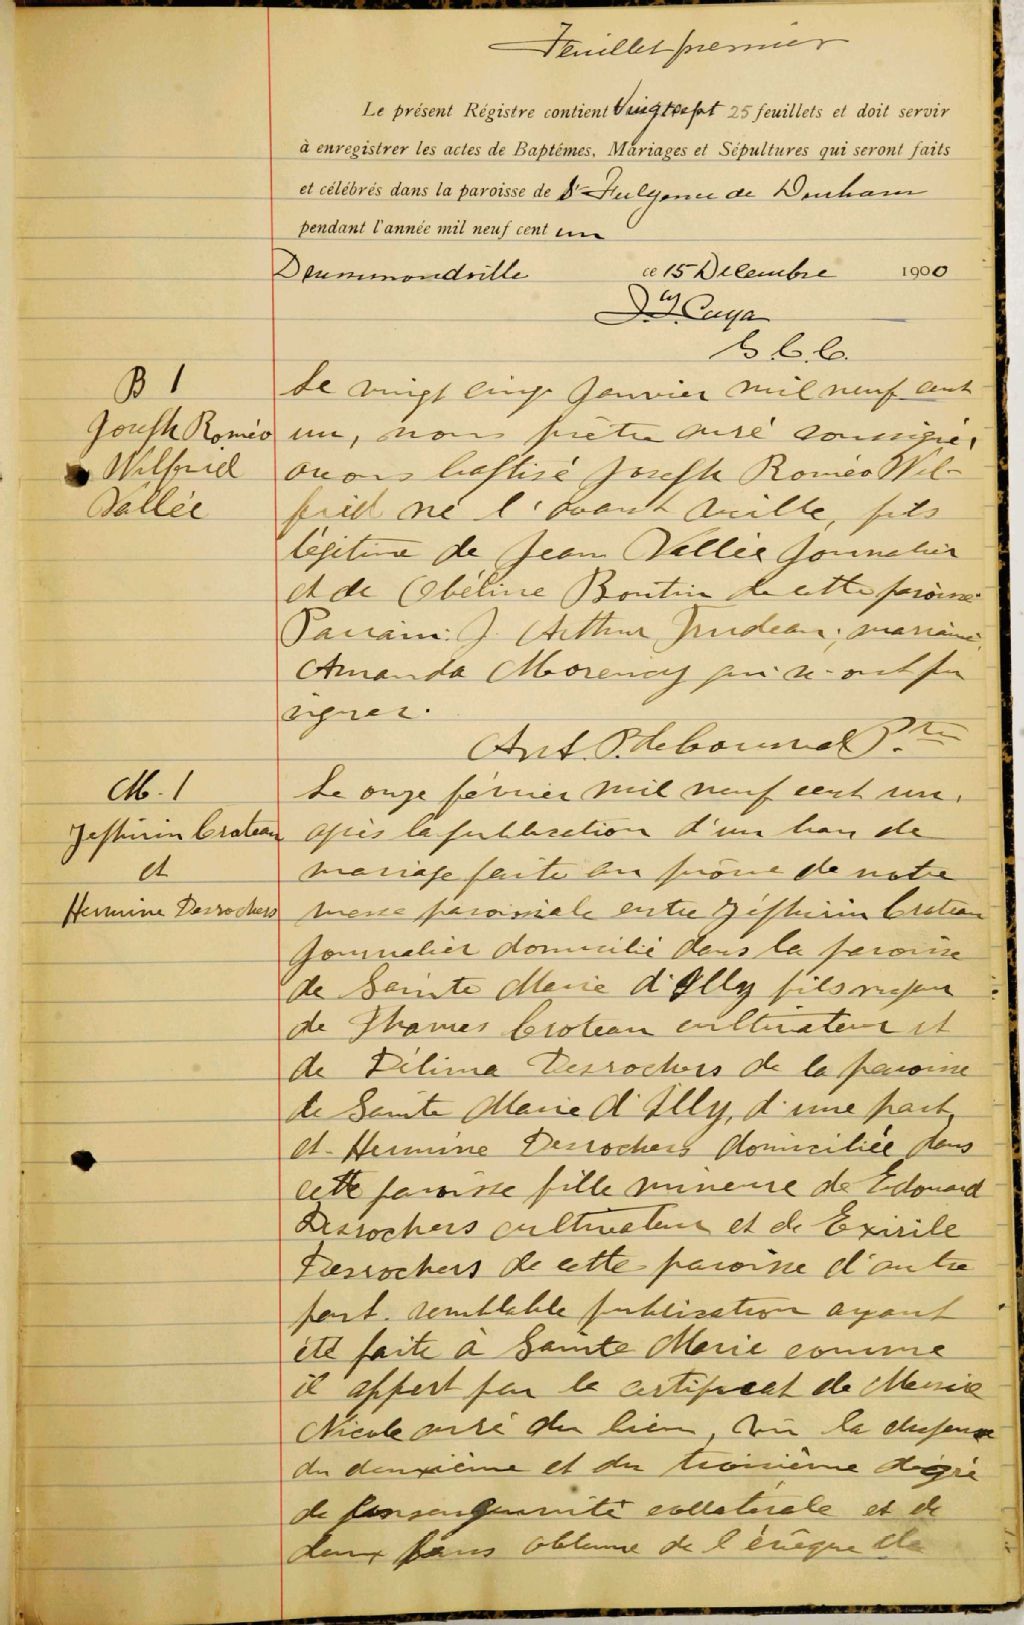 Feuillet premier
Le présent Régistre contient vingt sept 25 feuillets et doit servir
à enregistrer les actes de Baptêmes, Mariages et Sépultures qui seront faits
et célébrés dans la paroisse de St Fulgence de Durham
pendant l'année mil neuf cent un
Drummondville ce 15 Décembre 1900
J. Caya
B 1
Joseph Roméo
Wilfrid
Vallée
Le vingt cinq Janvier mil neuf cent
un, nous prêtre curé soussigné,
avons baptisé Joseph Roméo Wil-
frid né l'avant veille, fils
légitime de Jean Vallée Journalier
et de Obéline Boutin de cette paroisse
Parrain: J. Arthur Trudeau; marraine
Amanda Morency qui n'ont pu
signer.
Ant. P. Ptre
M. 1
Zéphirin Croteau
et
Hermine Desrochers
Le onze février mil neuf cent un,
après la publication d'un ban de
mariage faite au prône de notre
messe paroissiale entre Zéphirin Croteau
Journalier domicilié dans la paroisse
de Sainte Marie d'Elly fils majeur
de Thomas Croteau cultivateur et
de Délima Desrochers de la paroisse
de Sainte Marie d'Elly, d'une part,
et Hermine Desrochers domiciliée dans
cette paroisse fille mineure de Edouard
Desrochers cultivateur et de Exirile
Desrochers de cette paroisse d'autre
part. semblable publication ayant
été faite à Sainte Marie comme
il appert par le certificat de Messire
Nicole curé du lieu, vu la dispense
du deuxième et du troisième dégré
de consanguinité collatérale et de
deux bans obtenue de l'évêque de